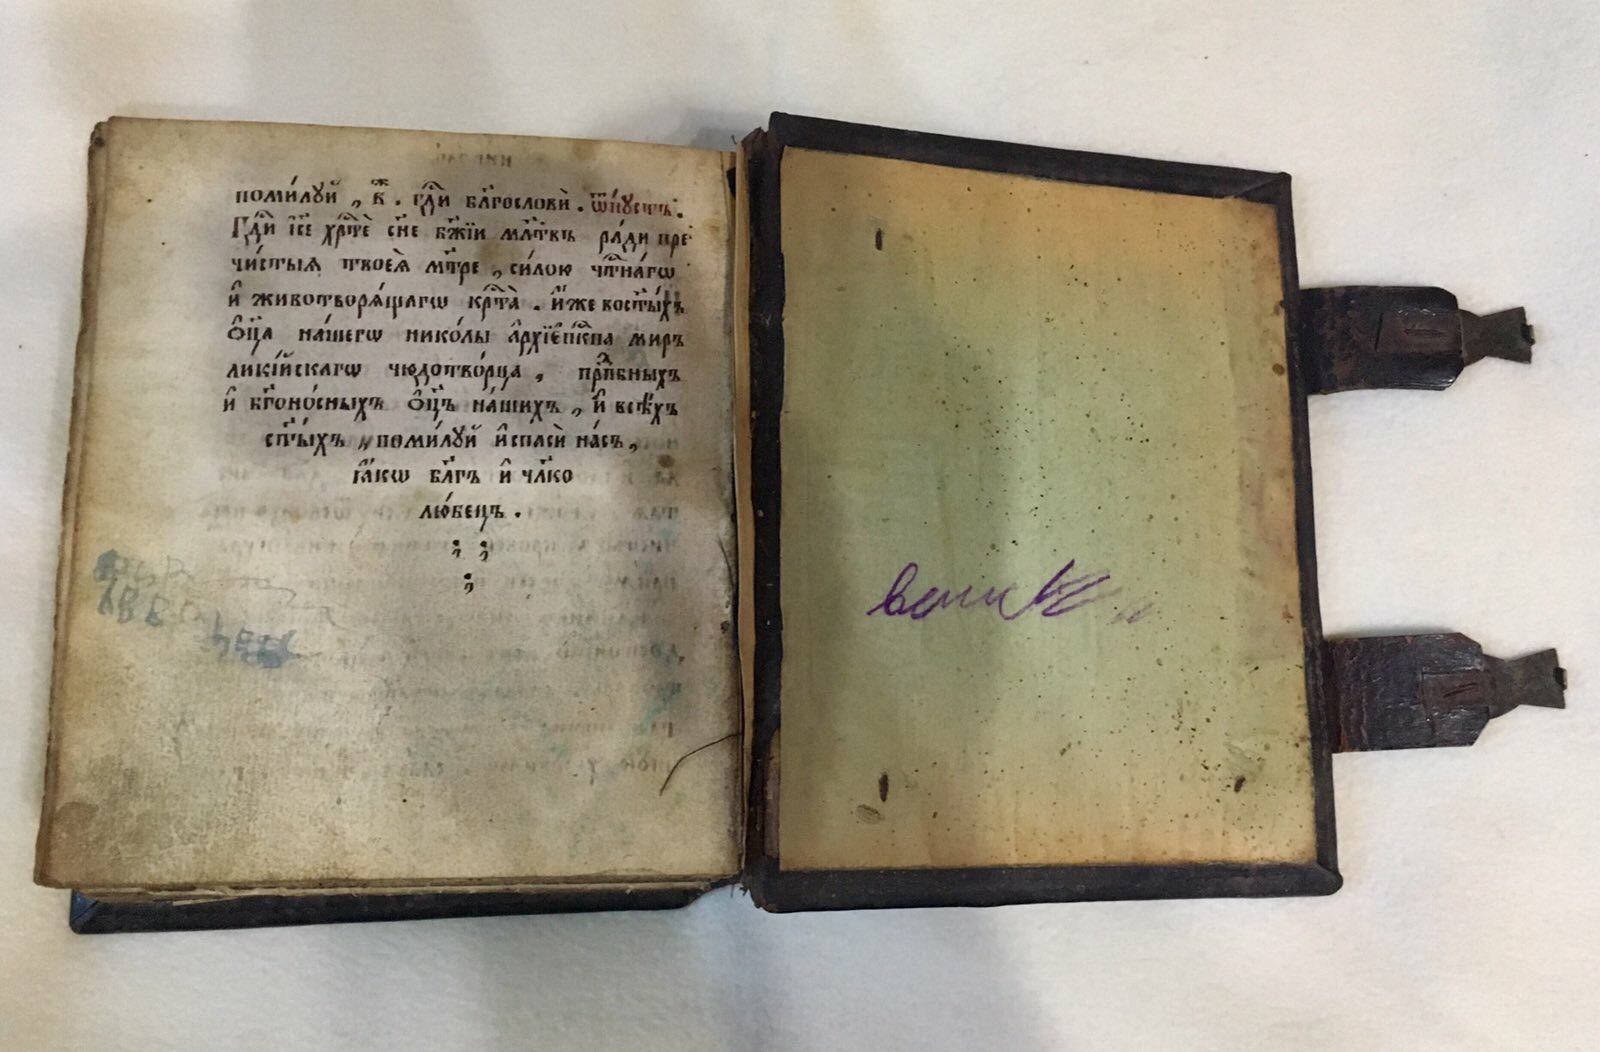 поми́лꙋй , в҃ . гдⷭ҇и бл҃гослови̂ . ѿпꙋстъ .
Гдⷭ҇и і҆с҃е хрⷭ҇те̂ сн҃е бж҃їи мл҃твъ ра́ди пре
чи́стыѧ твоеѧ̀ мт҃ре , си́лою чтⷭ҇на́гѡ
и҆ животворѧ́щагѡ крⷭ҇та̀ . и҆́же востⷭ҇ы́хъ
ѻ҆ц҃а на́шегѡ нико́лы а҆рхїе҆пⷭ҇кпа миръ
лики́йскагѡ чюдотво́рца , прпⷣбныхъ
и҆ бг҃оно́сныхъ ѻ҆ц҃ъ на́шихъ , и҆ всѣ́хъ
ст҃ы́хъ , поми́лꙋй и҆ спаси̂ на́съ ,
ꙗ҆́кѡ бл҃гъ и҆ чл҃ко
лю́бецъ .